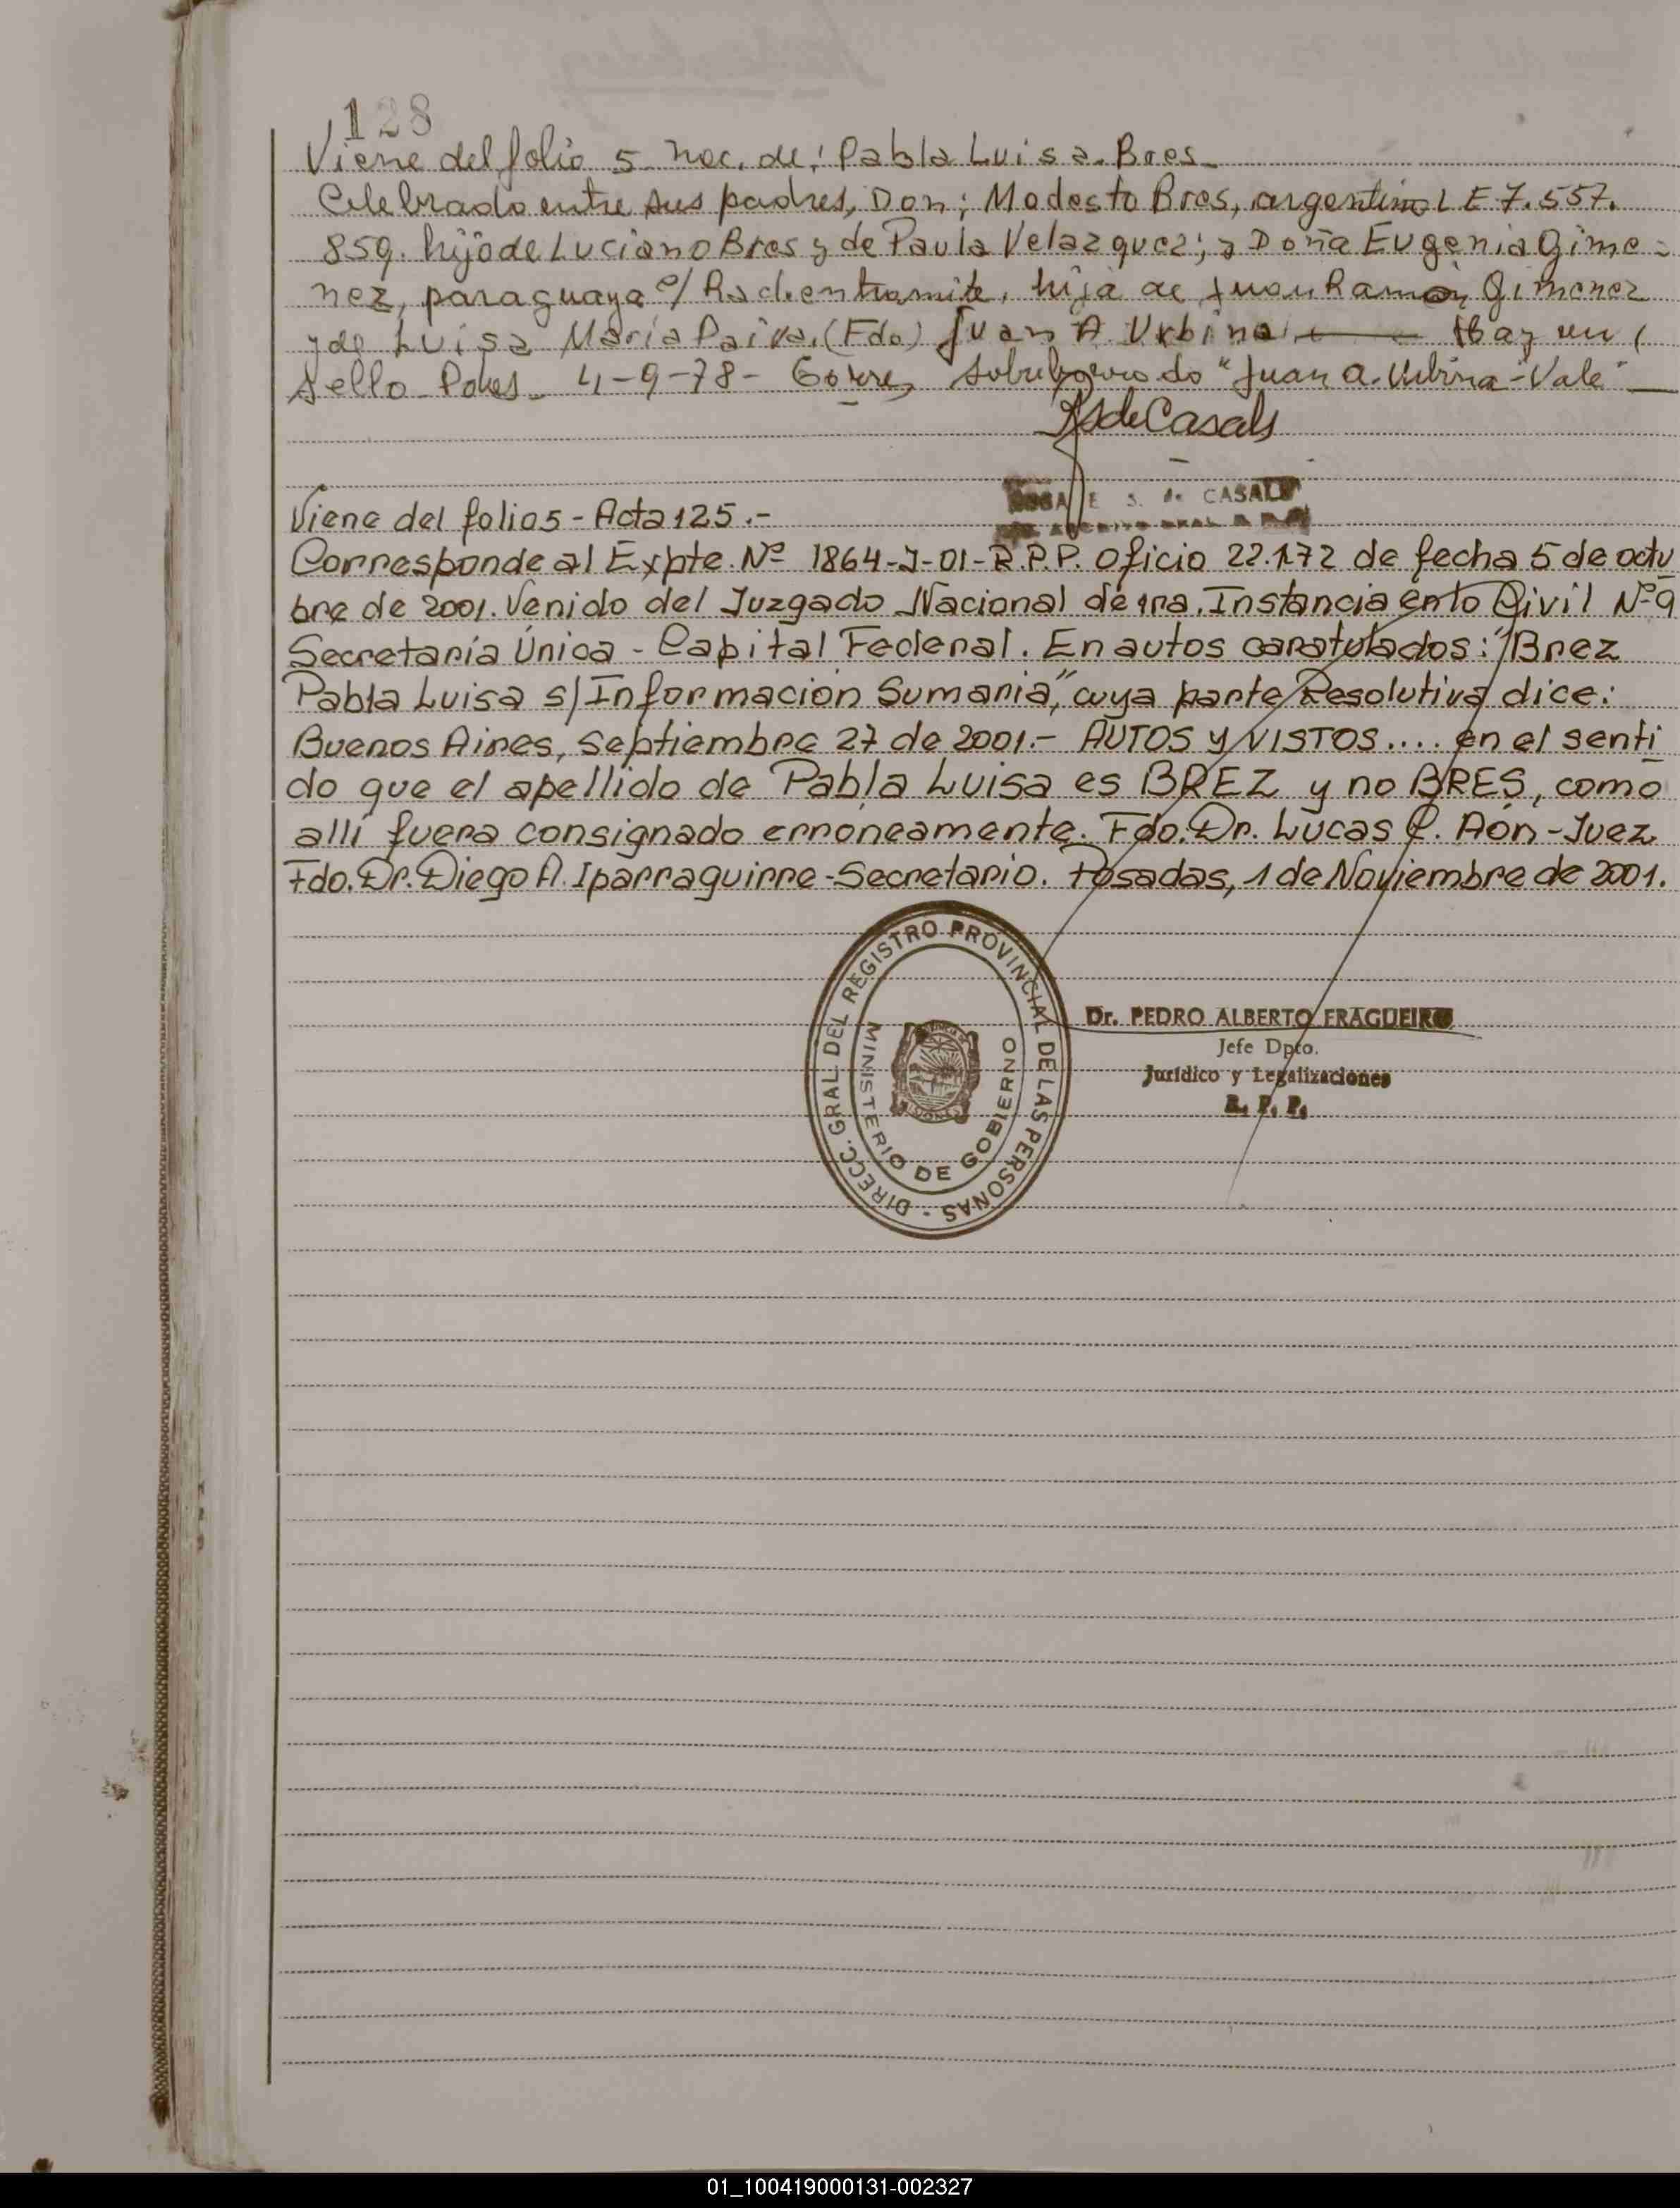 128
Viene del folio 5 Nac. de: Pabla Luisa Bres
Celebrado entre sus padres, Don; Modesto Bres, argentino L E 7.557.
859. hijo de Luciano Bres y de Paula Velazquez; y Doña Eugenia Gime-
nez, paraguaya c/ Rad. en tramite, hija de Juan Ramón Gimenez
y de Luisa María Paiva. (Fdo) Juan A Urbina Hay un (
Sello Posas 4-9-78- Corre, sobreborrado "Juan A. Urbina-Vale"
S. de CASALS
Viene del folio 5 - Acta 125.-
Corresponde al Expte. Nº 1864-J-01-R.P.P. Oficio 22.172 de fecha 5 de octu
bre de 2001. Venido del Juzgado Nacional de 1ra. Instancia en lo Civil Nº 9
Secretaría Única - Capital Federal. En autos caratulados: "Brez
Pabla Luisa s/ Información Sumaria", cuya parte Resolutiva dice:
Buenos Aires, Septiembre 27 de 2001.- AUTOS y VISTOS.... en el senti
do que el apellido de Pabla Luisa es BREZ y no BRES, como
allí fuera consignado erróneamente. Fdo. Dr. Lucas C. Aón - Juez
Fdo. Dr. Diego A. Iparraguirre - Secretario. Posadas, 1 de Noviembre de 2001.
DIRECC. GRAL. DEL REGISTRO PROVINCIAL DE LAS PERSONAS -
MINISTERIO DE GOBIERNO
Dr. PEDRO ALBERTO FRAGUEIRO
Jefe Dpto.
Jurídico y Legalizaciones
R. P. P.
01_100419000131-002327